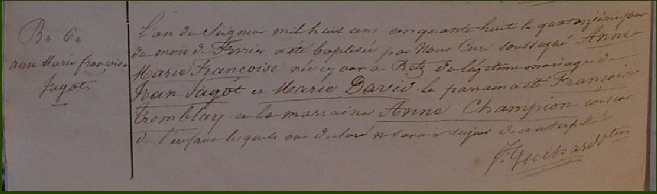 B. 6.
Anne Marie Françoise
Jagot
L'an du Seigneur mil huit cent cinquante huit le quatorzième jour
du mois de Février a été baptisée par Nous Curé soussigné Anne
Marie Françoise née à Retz du légitime mariage de
Jean Jagot et Marie David le parrain a été François
Tremblay et la marraine Anne Champion
de l'enfant lesquels ont déclaré ne savoir signer de ce interpellés
J. Guihard